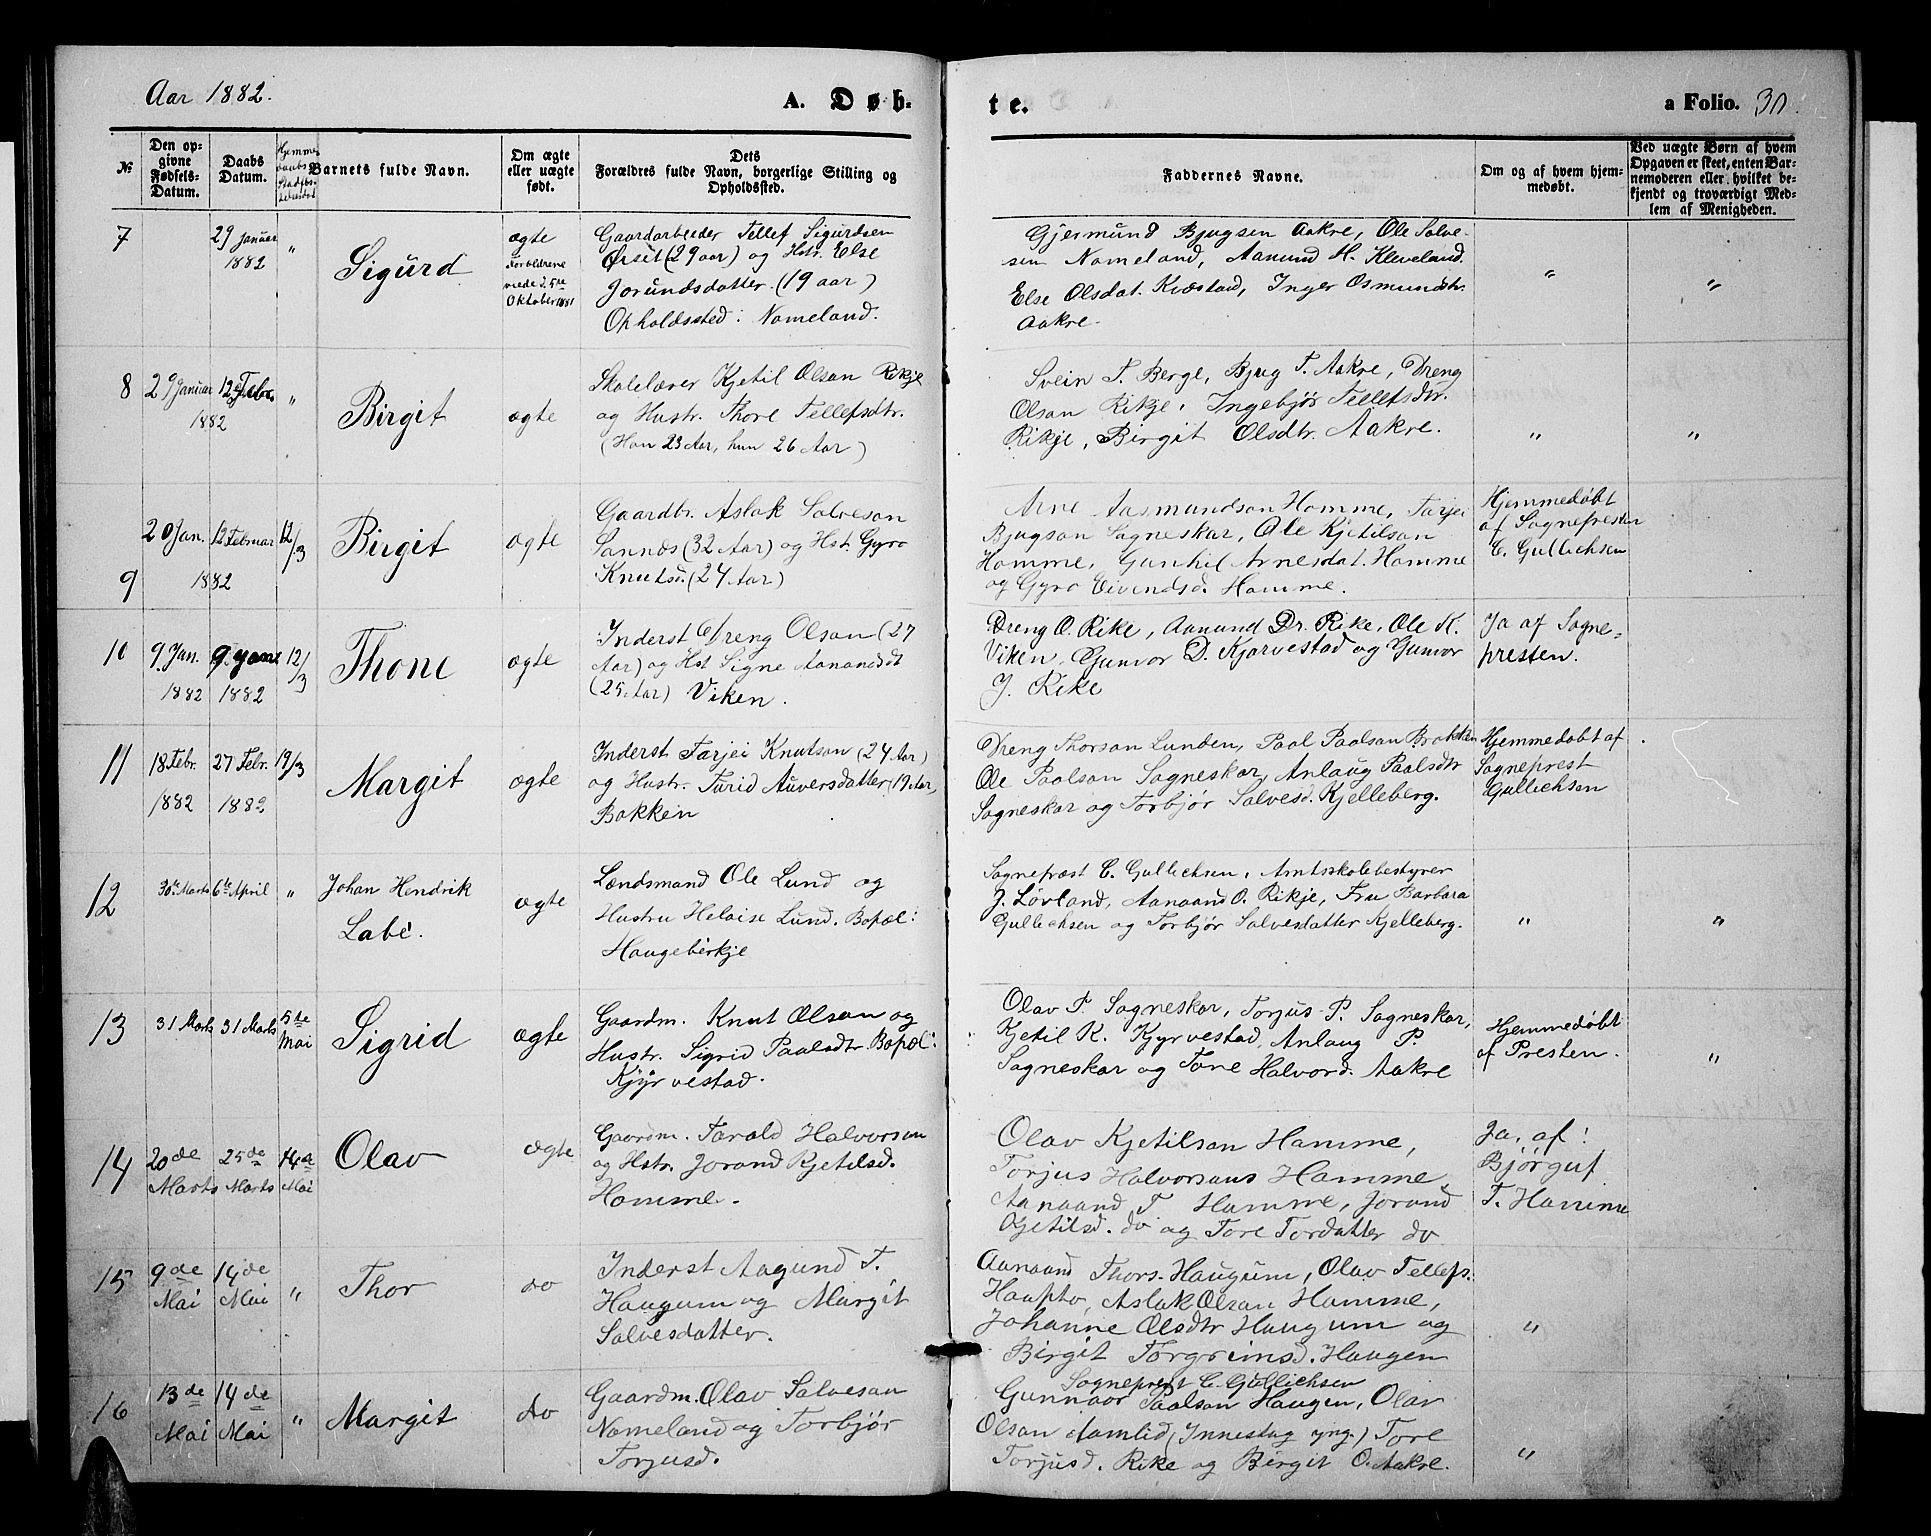 Aar 1882.
A. Døb-
te.
a Folio. 30.
№
Den op-
givne
Fødsels-
Datum.
Daabs
Datum.
Hjemme
daabs
Barnets fulde Navn.
Om ægte
eller uægte
født.
Dets
Forældres fulde Navn, borgerlige Stilling og
Opholdssted.
Faddernes Navne.
Om og af hvem hjem-
medøbt.
Ved uægte Børn af hvem
Opgaven er skeet, enten Bar-
nemoderen eller hvilket be-
kjendt og troværdigt Med-
lem af Menigheden.
7
29 Januar
1882
"
Sigurd
ægte
Forældrene
viede 25de
Oktober 1881
Gaardarbeider Tellef Sigurdsen
Örsit (29 aar) og Hstr. Else
Jorundsdatter. (19 aar)
Opholdssted: Nomeland.
Gjermund Bjugsen Aakre, Ole Salve-
sen Nomeland, Aanund H. Kleveland.
Else Olsdat. Kvæstad, Inger Osmundstr.
Aakre.
"
"
8
29 Januar
1882
12 Febr.
"
Birgit
ægte
Skolelærer Kjetil Olson Rikje
og Hustr. Thore Tellefsdtr.
(Han 23 Aar, hun 26 Aar)
Svein T. Berge, Bjug T. Aakre, Dreng
Olson Rikje, Ingebjör Tellefsdtr.
Rikje, Birgit Olsdtr. Aakre.
"
"
9
20 Jan.
1882
12 Februar
12/3
Birgit
ægte
Gaardbr. Aslak Salveson
Sannæs (32 Aar) og Hst. Gyro
Knutsd. (24 Aar)
Arne Aasmundson Homme, Tarjei
Bjugson Sagneskar, Ole Kjetilson
Homme, Gunhil Arnesdat. Homme
og Gyro Eivendsd. Homme.
Hjemmedøbt
af Sognepresten
C. Gullichsen
10
9 Jan.
1882
9 Janr
1882
12/3
Thone
ægte
Inderst Dreng Olson (27
Aar) og Hst Signe Aanandsdt
(25 Aar) Viken.
Dreng O. Rike, Aanund Dr. Rike, Ole K.
Viken, Gunvor D. Kjorvestad og Gunvor
J. Rike
Ja af Sogne-
presten.
11
18 Febr.
1882
27 Febr.
1882
19/3
Margit
ægte
Inderst Tarjei Knutson (24 Aar)
og Hustr. Turid Auversdatter (19 Aar)
Bakken
Dreng Thorson Lunden, Paal Paalson Brokken
Ole Paalson Sagneskar, Anlaug Paalsdtr
Sagneskar og Torbjør Salvesd. Kjelleberg.
Hjemmedøbt af
Sogneprest
Gullichsen
12
30te Marts
6te April
"
Johan Hendrik
Labé.
ægte
Lændsmand Ole Lund og
Hustru Heloise Lund. Bopæl:
Haugeberkje
Sognepræst C. Gullichsen, Amtsskolebestyrer
J. Lövland, Aanaand O. Rikje, Fru Barbara
Gullichsen og Torbjör Salvesdatter Kjelleberg.
"
"
13
31 Marts
31 Marts
5te
Mai
Sigrid
ægte
Gaardm. Knut Olson og
Hustr. Sigrid Paalsdtr. Bopæl:
Kjyrvestad.
Olav P. Sagneskar, Torjus P. Sagneskar,
Kjetil K. Kjyrvestad, Anlaug P.
Sagneskar og Tone Halvord. Aakre
Hjemmedøbt
af Presten.
"
14
20de
Marts
25de
Marts
14de
Mai
Olav
ægte
Gaardm. Tarald Halvorson
og Hstr. Jorand Kjetilsd.
Homme.
Olav Kjetilson Homme,
Torjus Halvorsons Homme,
Aanaand T. Homme, Jorand
Kjetilsd. do og Tore Tordatter do
Ja, af!
Bjørguf
T. Homme
15
9de
Mai
14de
Mai
"
Thor
do
Inderst Aagund T.
Haugum og Margit
Salvesdatter.
Aanaand Thors. Haugum, Olav Tellefs.
Haapto, Aslak Olson Homme,
Johanne Olsdtr Haugum og
Birgit Torgrimsd. Haugen
"
16
13de
Mai
14de
Mai
"
Margit
do
Gaardm. Olav Salveson
Nomeland og Torbjör
Torjusd.
Sogneprest C. Gullichsen
Gunnaar Paalson Haugen, Olav
Olson Aamlid (Innestog yng.) Tore
Torjusd. Rike og Birgit O. Aakre.
"